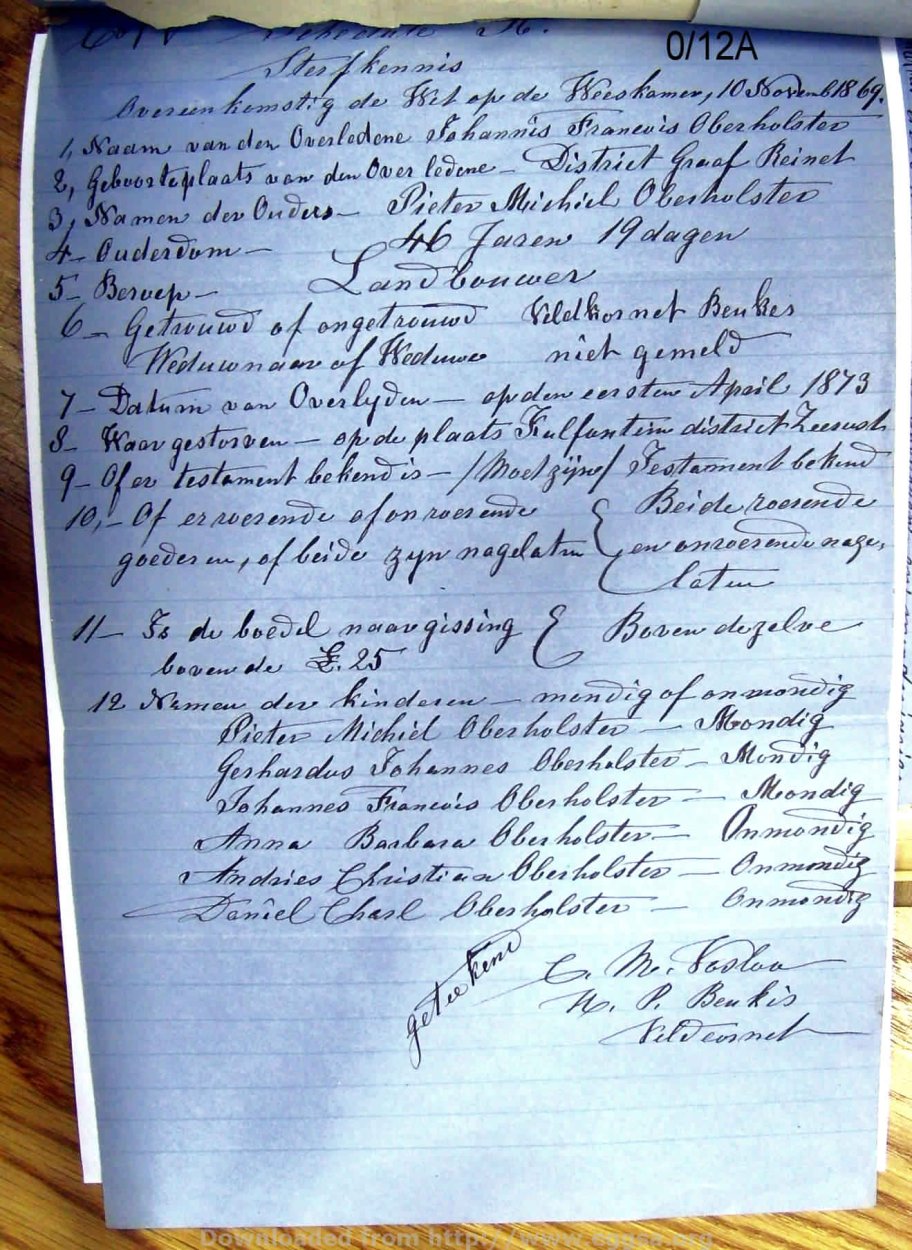 Copy Schedule
0/12A
Sterfkennis
Overeenkomstig de Wet op de Weeskamer, 10 Novemb 1869.
1, Naam van den Overledene Johannis Francois Oberholster
2, Geboorteplaats van den Over ledene - District Graaf Reinet
3, Namen der Ouders - Pieter Michiel Oberholster
4 - Ouderdom - 46 Jaren 19 dagen
5 - Beroep - Landbouwer
6 - Getrouwd of ongetrouwd Veldkornet Beukes
Weduwnaar of Weduwe niet gemeld
7 - Datum van Overlyden - op den eersten April 1873
8 - Waar gestorven - op de plaats district Zeerust
9 - Of er testament bekend is - / Moet zijne / Testament bekend
10, - Of er roerende of onroerende { Beide roerende
goederen, of beide zyn nagelaten en onroerende nage,
laten
11 - Is de boedel naar gissing { Boven dezelve
boven de £. 25
12 Namen der kinderen - mondig of onmondig
Pieter Michiel Oberholster - Mondig
Gerhardus Johannes Oberholster - Mondig
Johannes Francois Oberholster - Mondig
Anna Barbara Oberholster - Onmondig
Andries Christiaan Oberholster - Onmondig
Daniel Charl Oberholster - Onmondig
geteekend
C. M. Vosloo
P. Beukis
Veldcornet
Downloaded from http://www.eggsa.org